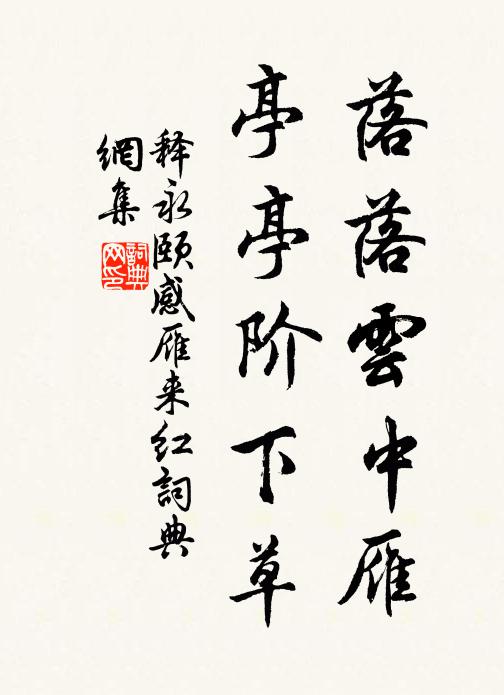 落落雲中雁
亭亭阶下草
释永颐感雁来红詞典
網集
詞典
网印